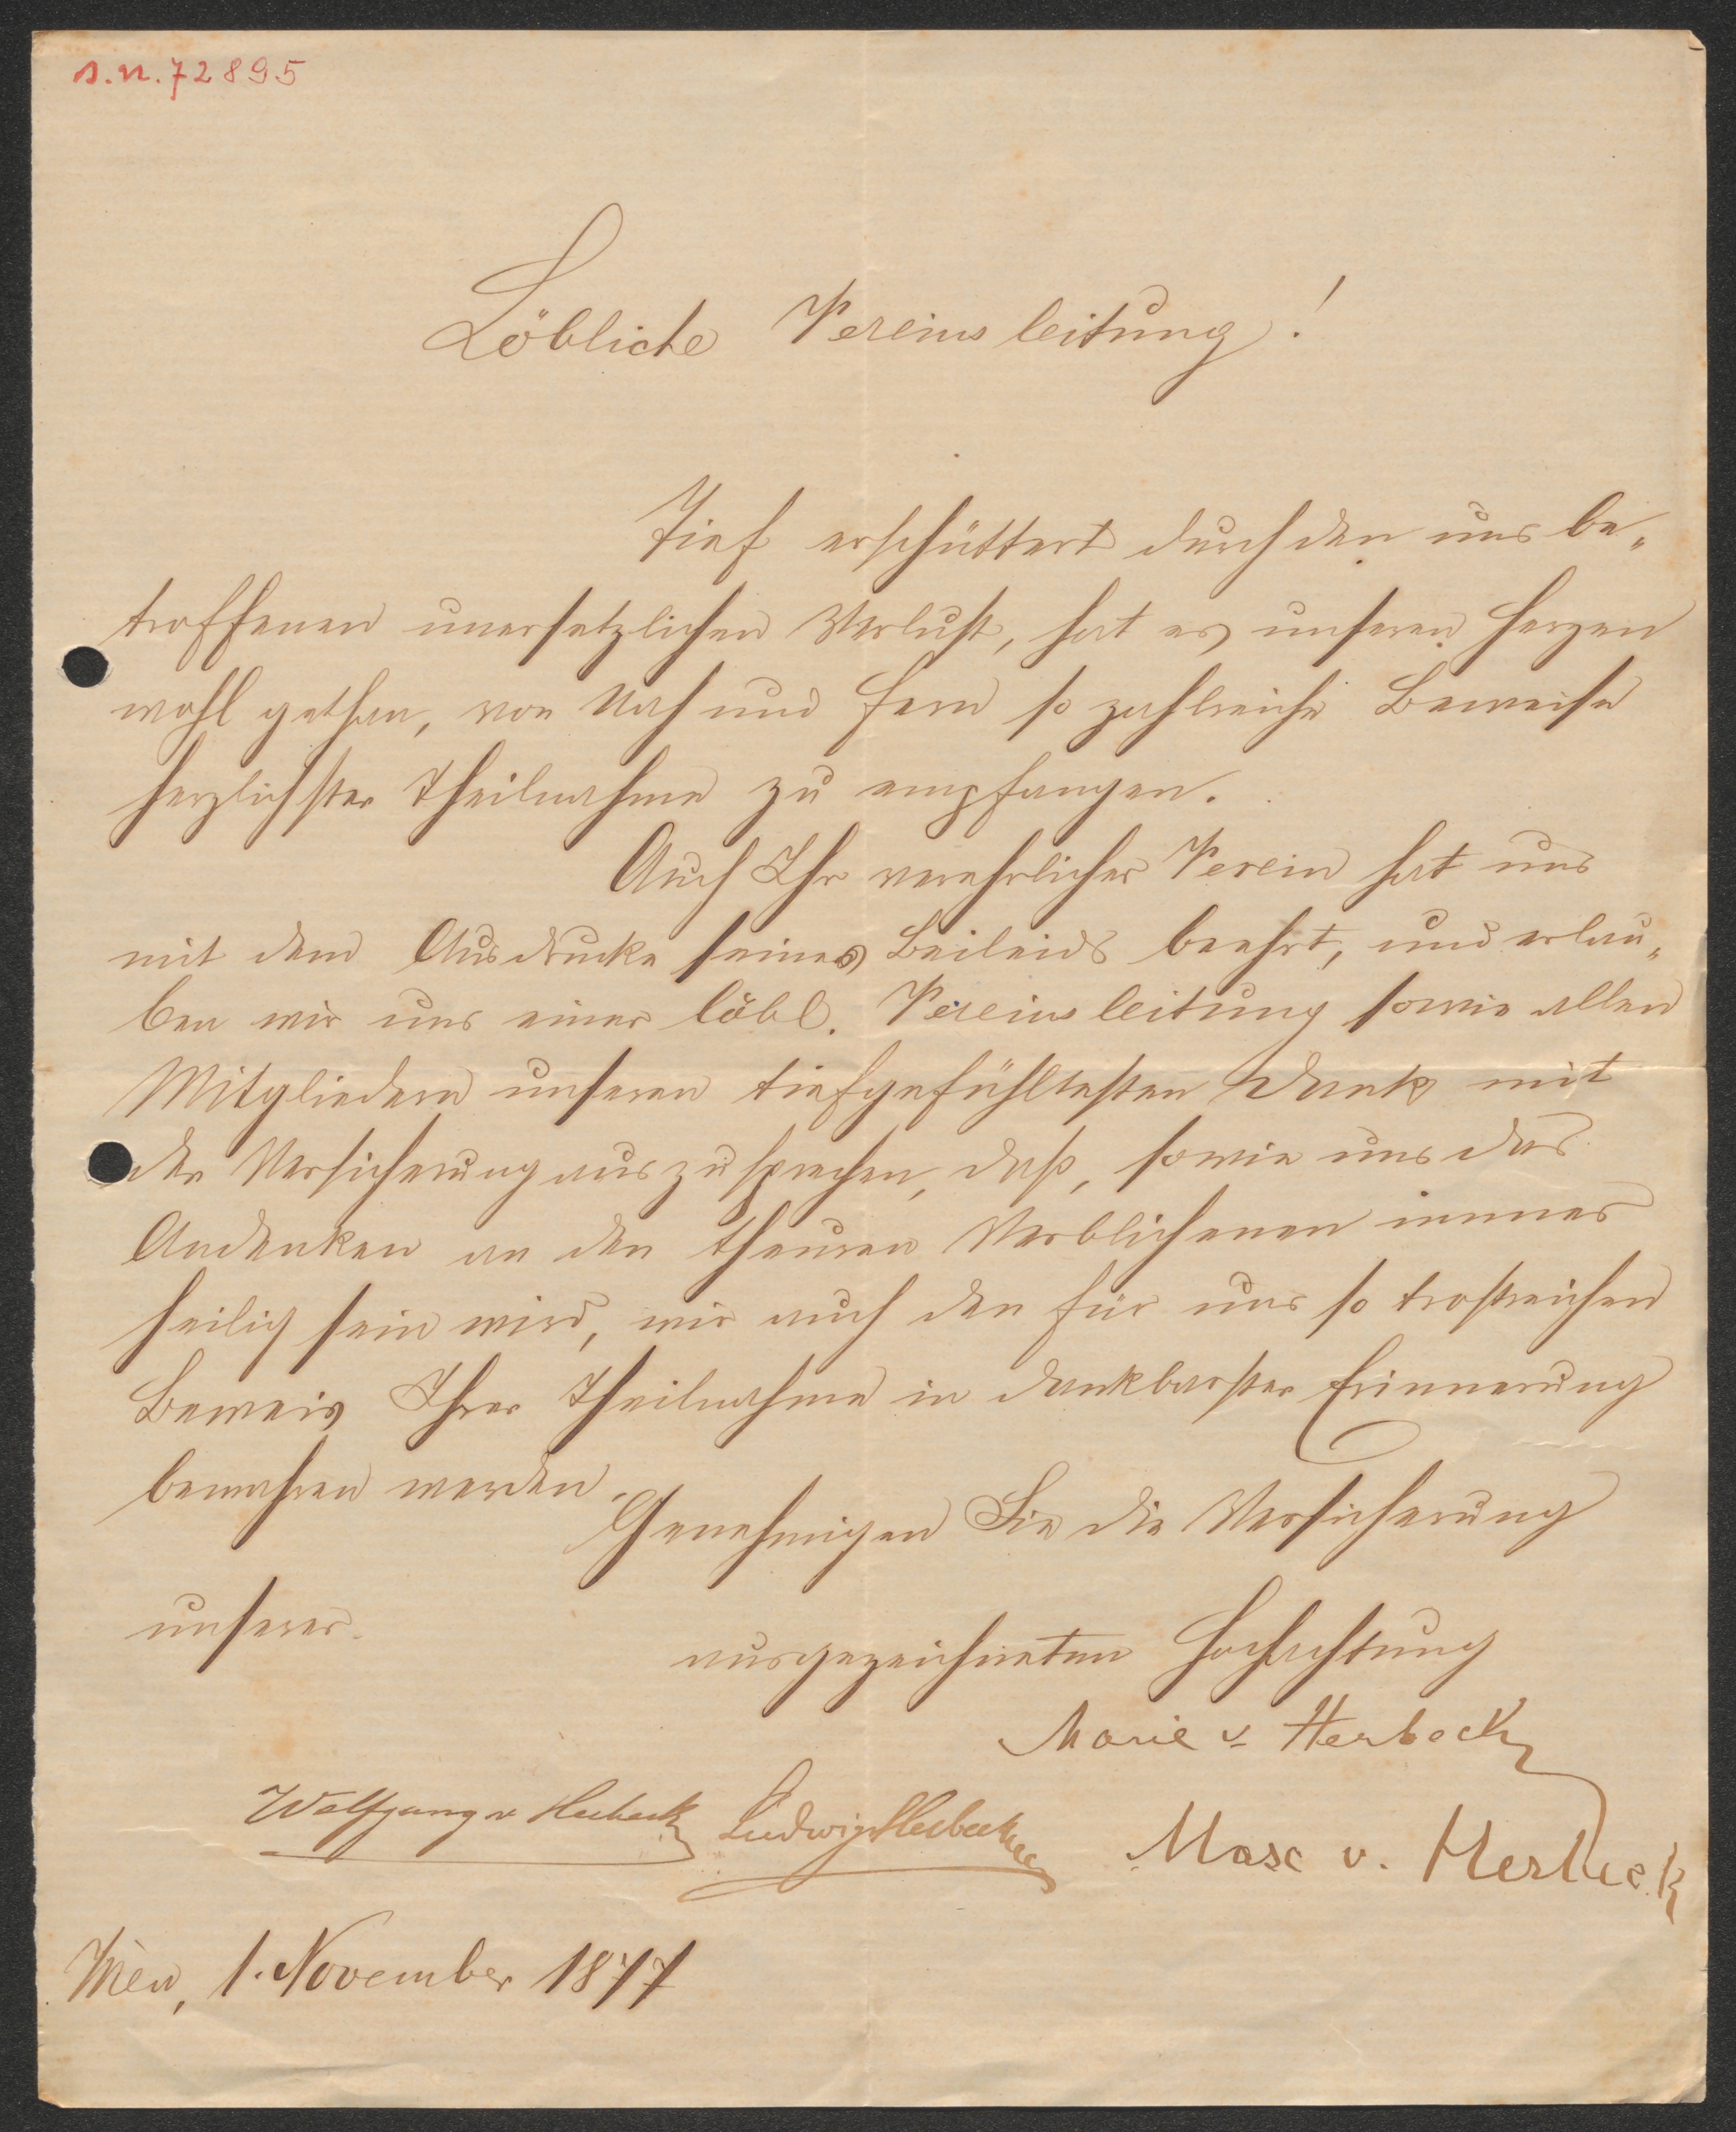 s.n. 72895
Löbliche Vereinsleitung!
Tief erschüttert durch den uns be„
troffenen unersetzlichen Verlust, hat es unseren Herzen
wohl gethan, von Nah und Fern so zahlreiche Beweise
herzlichster Theilnahme zu empfangen.
Auch Ihr verehrlicher Verein hat uns
mit dem Ausdrucke seines Beileids beehrt, und erlau„
ben wir uns einer löbl. Vereinsleitung sowie allen
Mitgliedern unseren tiefgefühltesten Dank mit
der Versicherung auszusprechen, daß, sowie uns das
Andenken an den theuren Verblichenen immer
heilig sein wird, wir auch den für uns so trostreichen
Beweis Ihrer Theilnahme in dankbarster Erinnerung
bewahren werden.
Genehmigen Sie die Versicherung
unserer
ausgezeichneten Hochachtung
Marie v. Herbeck
Wolfgang v Herbeck Ludwig Herbeck Max v. Herbeck
Wien, 1. November 1877